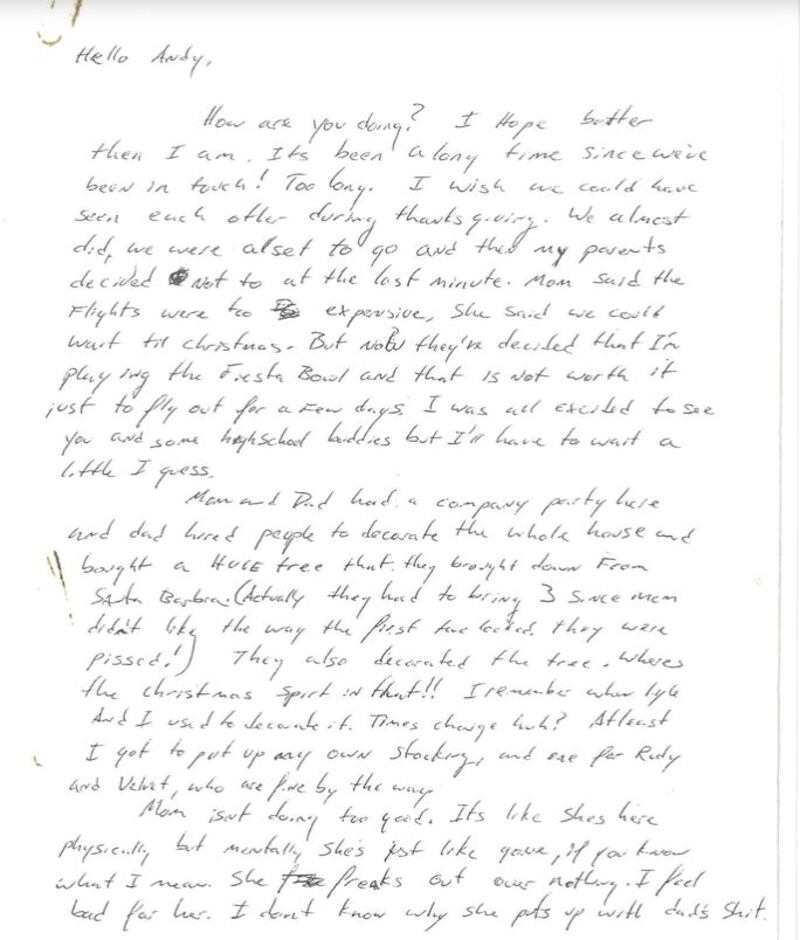 Hello Andy,
How are you doing? I Hope better
then I am. Its been a long time since we've
been in touch! Too long. I wish we could have
seen each other during thanksgiving. We almost
did, we were alset to go and then my parents
decided Not to at the last minute. Mom said the
Flights were too expensive, She said we could
wait til christmas. But now they've decided that I'm
playing the Fiesta Bowl and that is Not worth it
just to fly out for a Few days. I was all excited to see
you and some highschool buddies but I'll have to wait a
little I guess.
Mom and Dad had a company party here
and dad hired people to decorate the whole house and
bought a HUGE tree that they brought down From
Santa Barbra. (Actually they had to bring 3 since mom
didn't like the way the first two looked. They were
pissed!) They also decorated the tree. Wheres
the christmas spirt in that!! I remember when Lyle
And I used to decorate it. Times change huh? Atleast
I got to put up my own stocking, and one for Rudy
and Velvet, who are fine by the way.
Mom isnt doing too good. Its like shes here
physically but mentally she's just like gone, if you know
what I mean. She freaks out over nothing. I feel
bad for her. I don't know why she puts up with dad's shit.